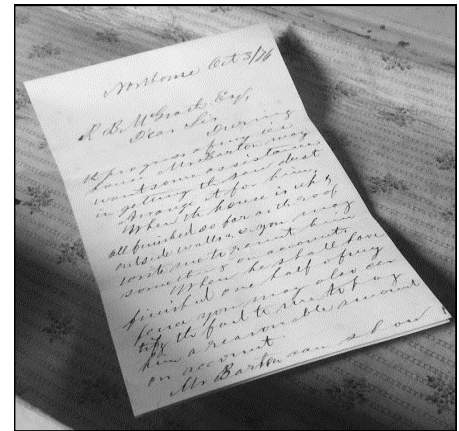 Northome Oct 3/76
R. B. McGrath Esq,
Dear Sir During
the progress of my ice
house Mr Barton may
want some assistance
in getting the saw dust
Arrange it for him
When the house is up &
all finished so far as the roof
outside walls &c you may
write me to grant him
something on account.
When he shall have
finished one half of my
fence you may also cer
tify the fact to me to pay
him a reasonable amount
on account.
Mr Barton can